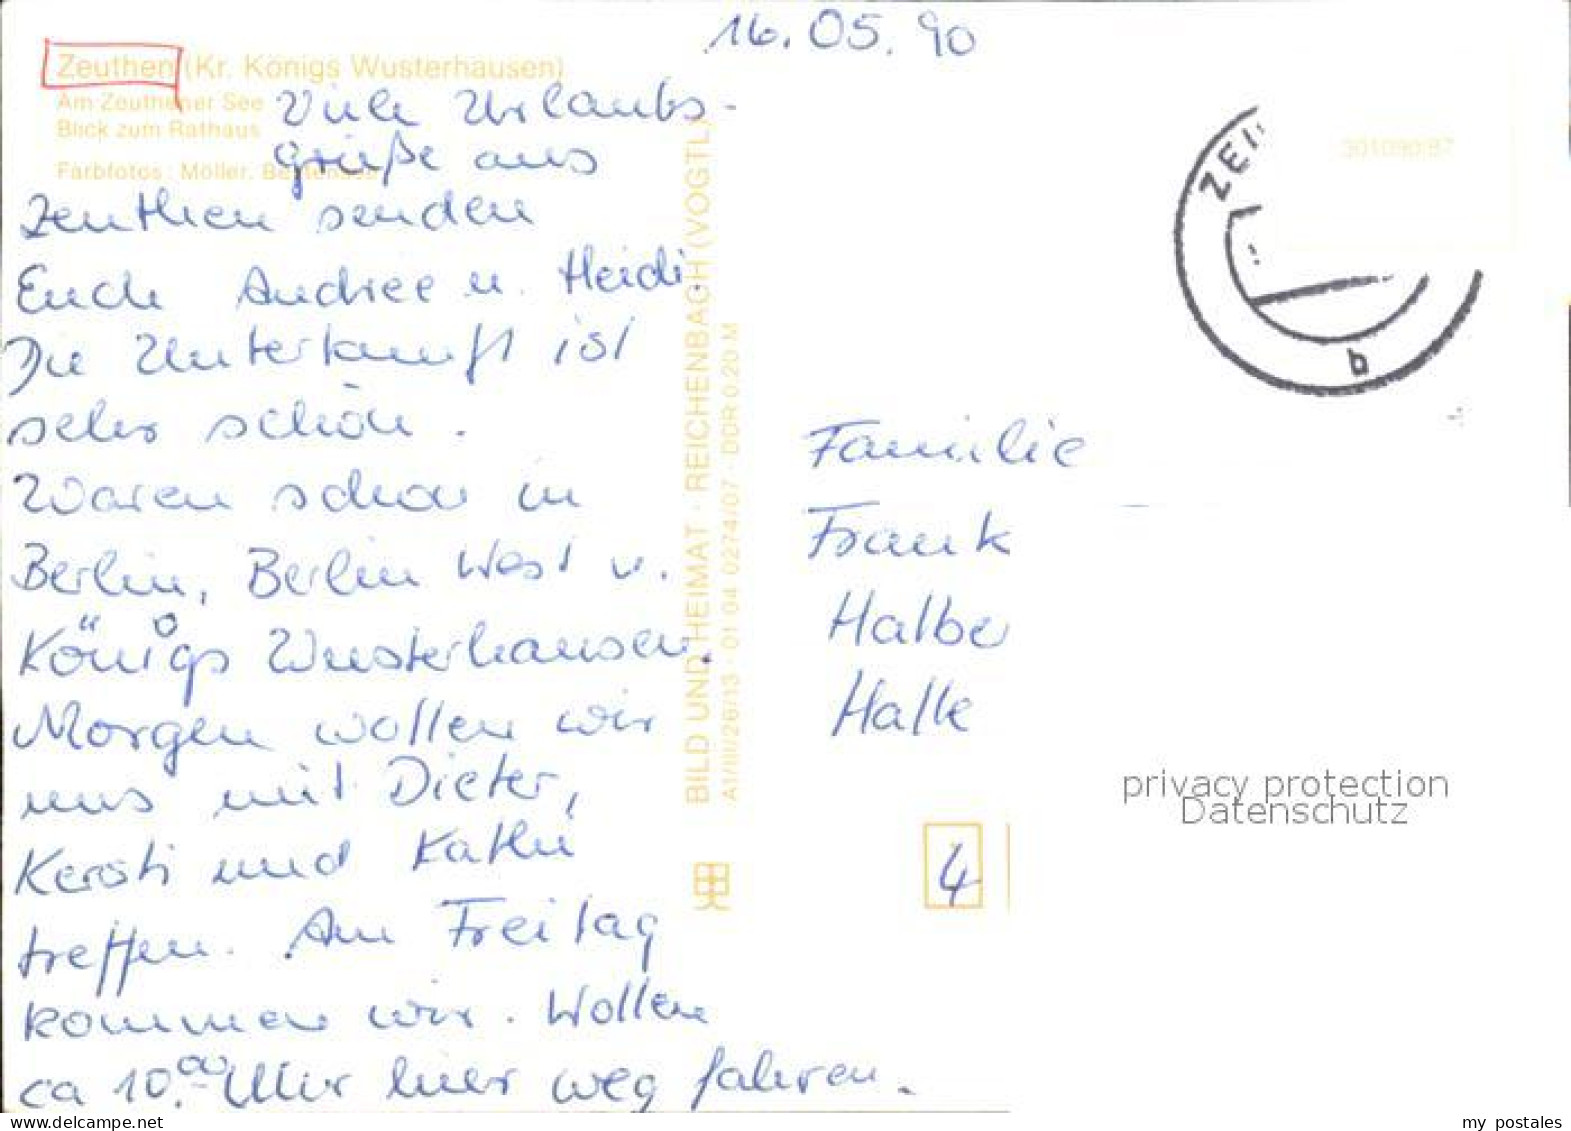 16.05.90
Zeuthen (Kr. Königs Wusterhausen)
Am Zeuthener See
Blick zum Rathaus
Farbfotos: Möller,
Viele Urlaubs-
grüße aus
Zeuthen senden
Euch Andree u. Heidi.
Die Unterkunft ist
sehr schön.
Waren schon in
Berlin, Berlin West u.
Königs Wusterhausen.
Morgen wollen wir
uns mit Dieter,
Kersti und Kathi
treffen. Am Freitag
kommen wir. Wollen
ca 10.00 Uhr hier weg fahren.
BILD UND HEIMAT · REICHENBACH (VOGTL)
A1/III/26/13 · 01 04 0274/07 · DDR 0,20 M
301090/87
ZEU
b
Familie
Frank
Halbe
Halle
4
privacy protection
Datenschutz
delcampe.net
my_postales